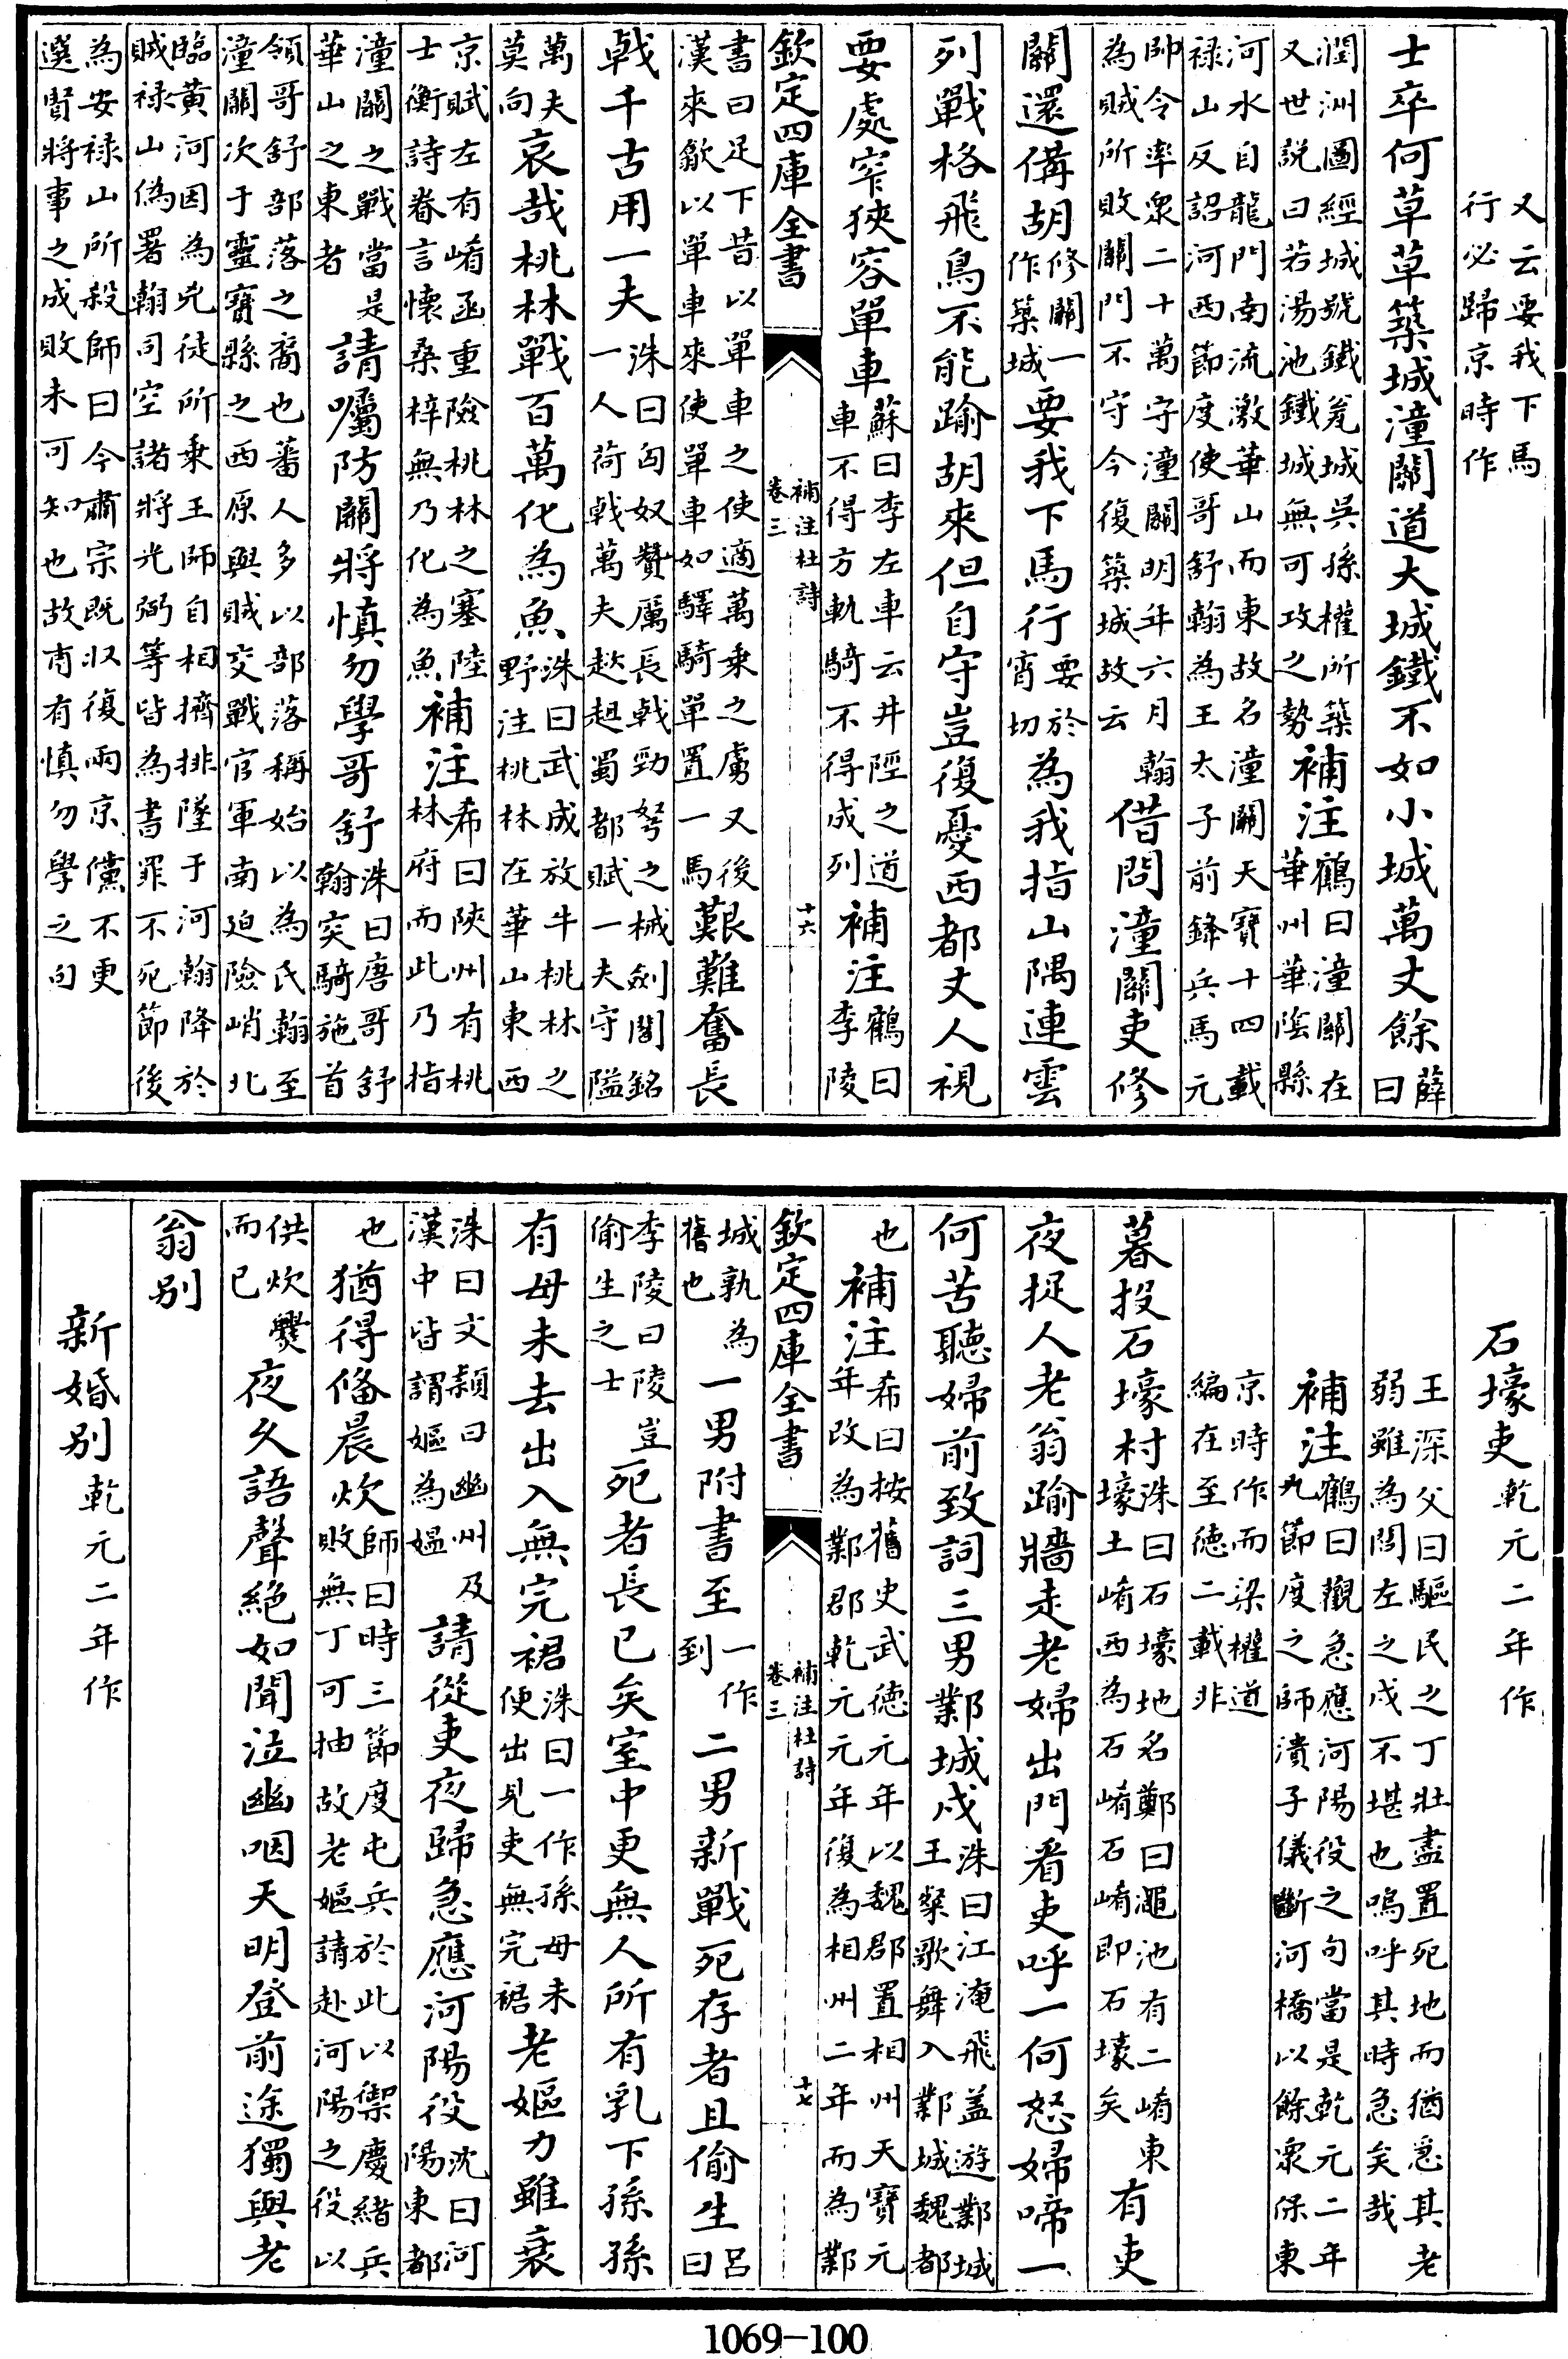 又云要我下馬
行必歸京時作
士卒何草草築城潼關道大城鐵不如小城萬丈餘薛曰
潤洲圖經城號鐵瓮城吳孫權所築
又世說曰若湯池鐵城無可攻之勢補注鶴曰潼關在華州華陰縣
河水自龍門南流激華山而東故名潼關天寶十四載
禄山反詔河西節度使哥舒翰為王太子前鋒兵馬元
帥令率衆二十萬守潼關明年六月翰
為賊所敗關門不守今復築城故云借問潼關吏修
關還備胡修關一作築城要我下馬行要於宵切為我指山隅連雲
列戰格飛鳥不能踰胡來但自守豈復憂西都丈人視
要處窄狹容單車蘇曰李左車云井陘之道車不得方軌騎不得成列補注鶴曰李陵
欽定四庫全書 補注杜詩卷三 十六
書曰足下昔以單車之使適萬乘之虜又後
漢來歙以單車來使單車如驛騎單置一馬艱難奮長
戟千古用一夫洙曰匈奴贊厲長戟勁弩之械劍閣銘一人荷戟萬夫趑趄蜀都賦一夫守隘
萬夫莫向哀哉桃林戰百萬化為魚洙曰武成放牛桃林之野注桃林在華山東西
京賦左有崤函重險桃林之塞陸
士衡詩眷言懷桑梓無乃化為魚補注希曰陝州有桃林府而此乃指
潼關之戰當是
華山之東者請囑防關將慎勿學哥舒洙曰唐哥舒翰突騎施首
領哥舒部落之裔也蕃人多以部落稱始以為氏翰至
潼關次于靈寶縣之西原與賊交戰官軍南迫險峭北
臨黃河因為兇徒所乗王師自相擠排墜于河翰降於
賊禄山偽署翰司空諸將光弼等皆為書罪不死節後
為安禄山所殺師曰今肅宗既收復兩京儻不更
選賢將事之成敗未可知也故甫有慎勿學之句
石壕吏乾元二年作
王深父曰驅民之丁壯盡置死地而猶急其老
弱雖為閭左之戍不堪也嗚呼其時急矣哉
補注鶴曰觀急應河陽役之句當是乾元二年九節度之師潰子儀斷河橋以餘衆保東
京時作而梁權道
編在至德二載非
暮投石壕村洙曰石壕地名鄭曰澠池有二崤東壕土崤西為石崤石崤即石壕矣有吏
夜捉人老翁踰牆走老婦出門看吏呼一何怒婦啼一
何苦聽婦前致詞三男鄴城戍洙曰江淹飛盖遊鄴城王粲歌舞入鄴城魏都
也補注希曰按舊史武德元年以魏郡置相州天寶元年改為鄴郡乾元元年復為相州二年而為鄴
欽定四庫全書 補注杜詩卷三 十七
城孰為
舊也一男附書至一作到二男新戰死存者且偷生呂曰
李陵曰陵豈
偷生之士死者長已矣室中更無人所有乳下孫孫
有母未去出入無完裙洙曰一作孫母未便出見吏無完裾老嫗力雖衰
洙曰文頴曰幽州及
漢中皆謂嫗為媪請從吏夜歸急應河陽役沈曰河陽東都
也猶得備晨炊師曰時三節度屯兵於此以禦慶緒兵敗無丁可抽故老嫗請赴河陽之役以
供炊爨
而已夜久語聲絶如聞泣幽咽天明登前途獨與老
翁别
新婚别乾元二年作
1069-100